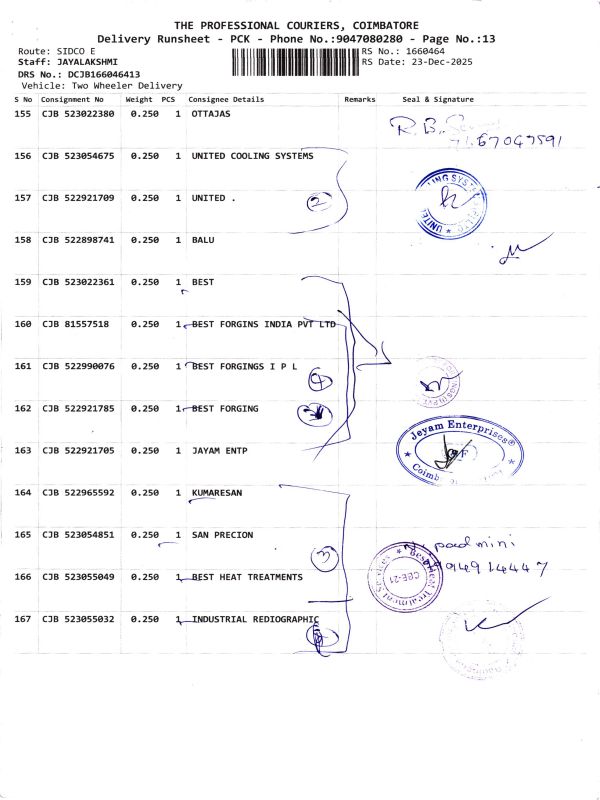 THE PROFESSIONAL COURIERS, COIMBATORE
Delivery Runsheet - PCK - Phone No.:9047080280 - Page No.:13
Route: SIDCO E RS No.: 1660464
Staff: JAYALAKSHMI RS Date: 23-Dec-2025
DRS No.: DCJB166046413
Vehicle: Two Wheeler Delivery
S No Consignment No Weight PCS Consignee Details Remarks Seal & Signature
155 CJB 523022380 0.250 1 OTTAJAS
R.B.
156 CJB 523054675 0.250 1 UNITED COOLING SYSTEMS
157 CJB 522921709 0.250 1 UNITED . 2
158 CJB 522898741 0.250 1 BALU
159 CJB 523022361 0.250 1 BEST
160 CJB 81557518 0.250 1 BEST FORGINS INDIA PVT LTD
161 CJB 522990076 0.250 1 BEST FORGINGS I P L
4
162 CJB 522921785 0.250 1 BEST FORGING
Jeyam Enterprises
163 CJB 522921705 0.250 1 JAYAM ENTP
164 CJB 522965592 0.250 1 KUMARESAN
165 CJB 523054851 0.250 1 SAN PRECION
padmini
3
166 CJB 523055049 0.250 1 BEST HEAT TREATMENTS
Best Heat Treatment Services
CBE-21
167 CJB 523055032 0.250 1 INDUSTRIAL REDIOGRAPHIC